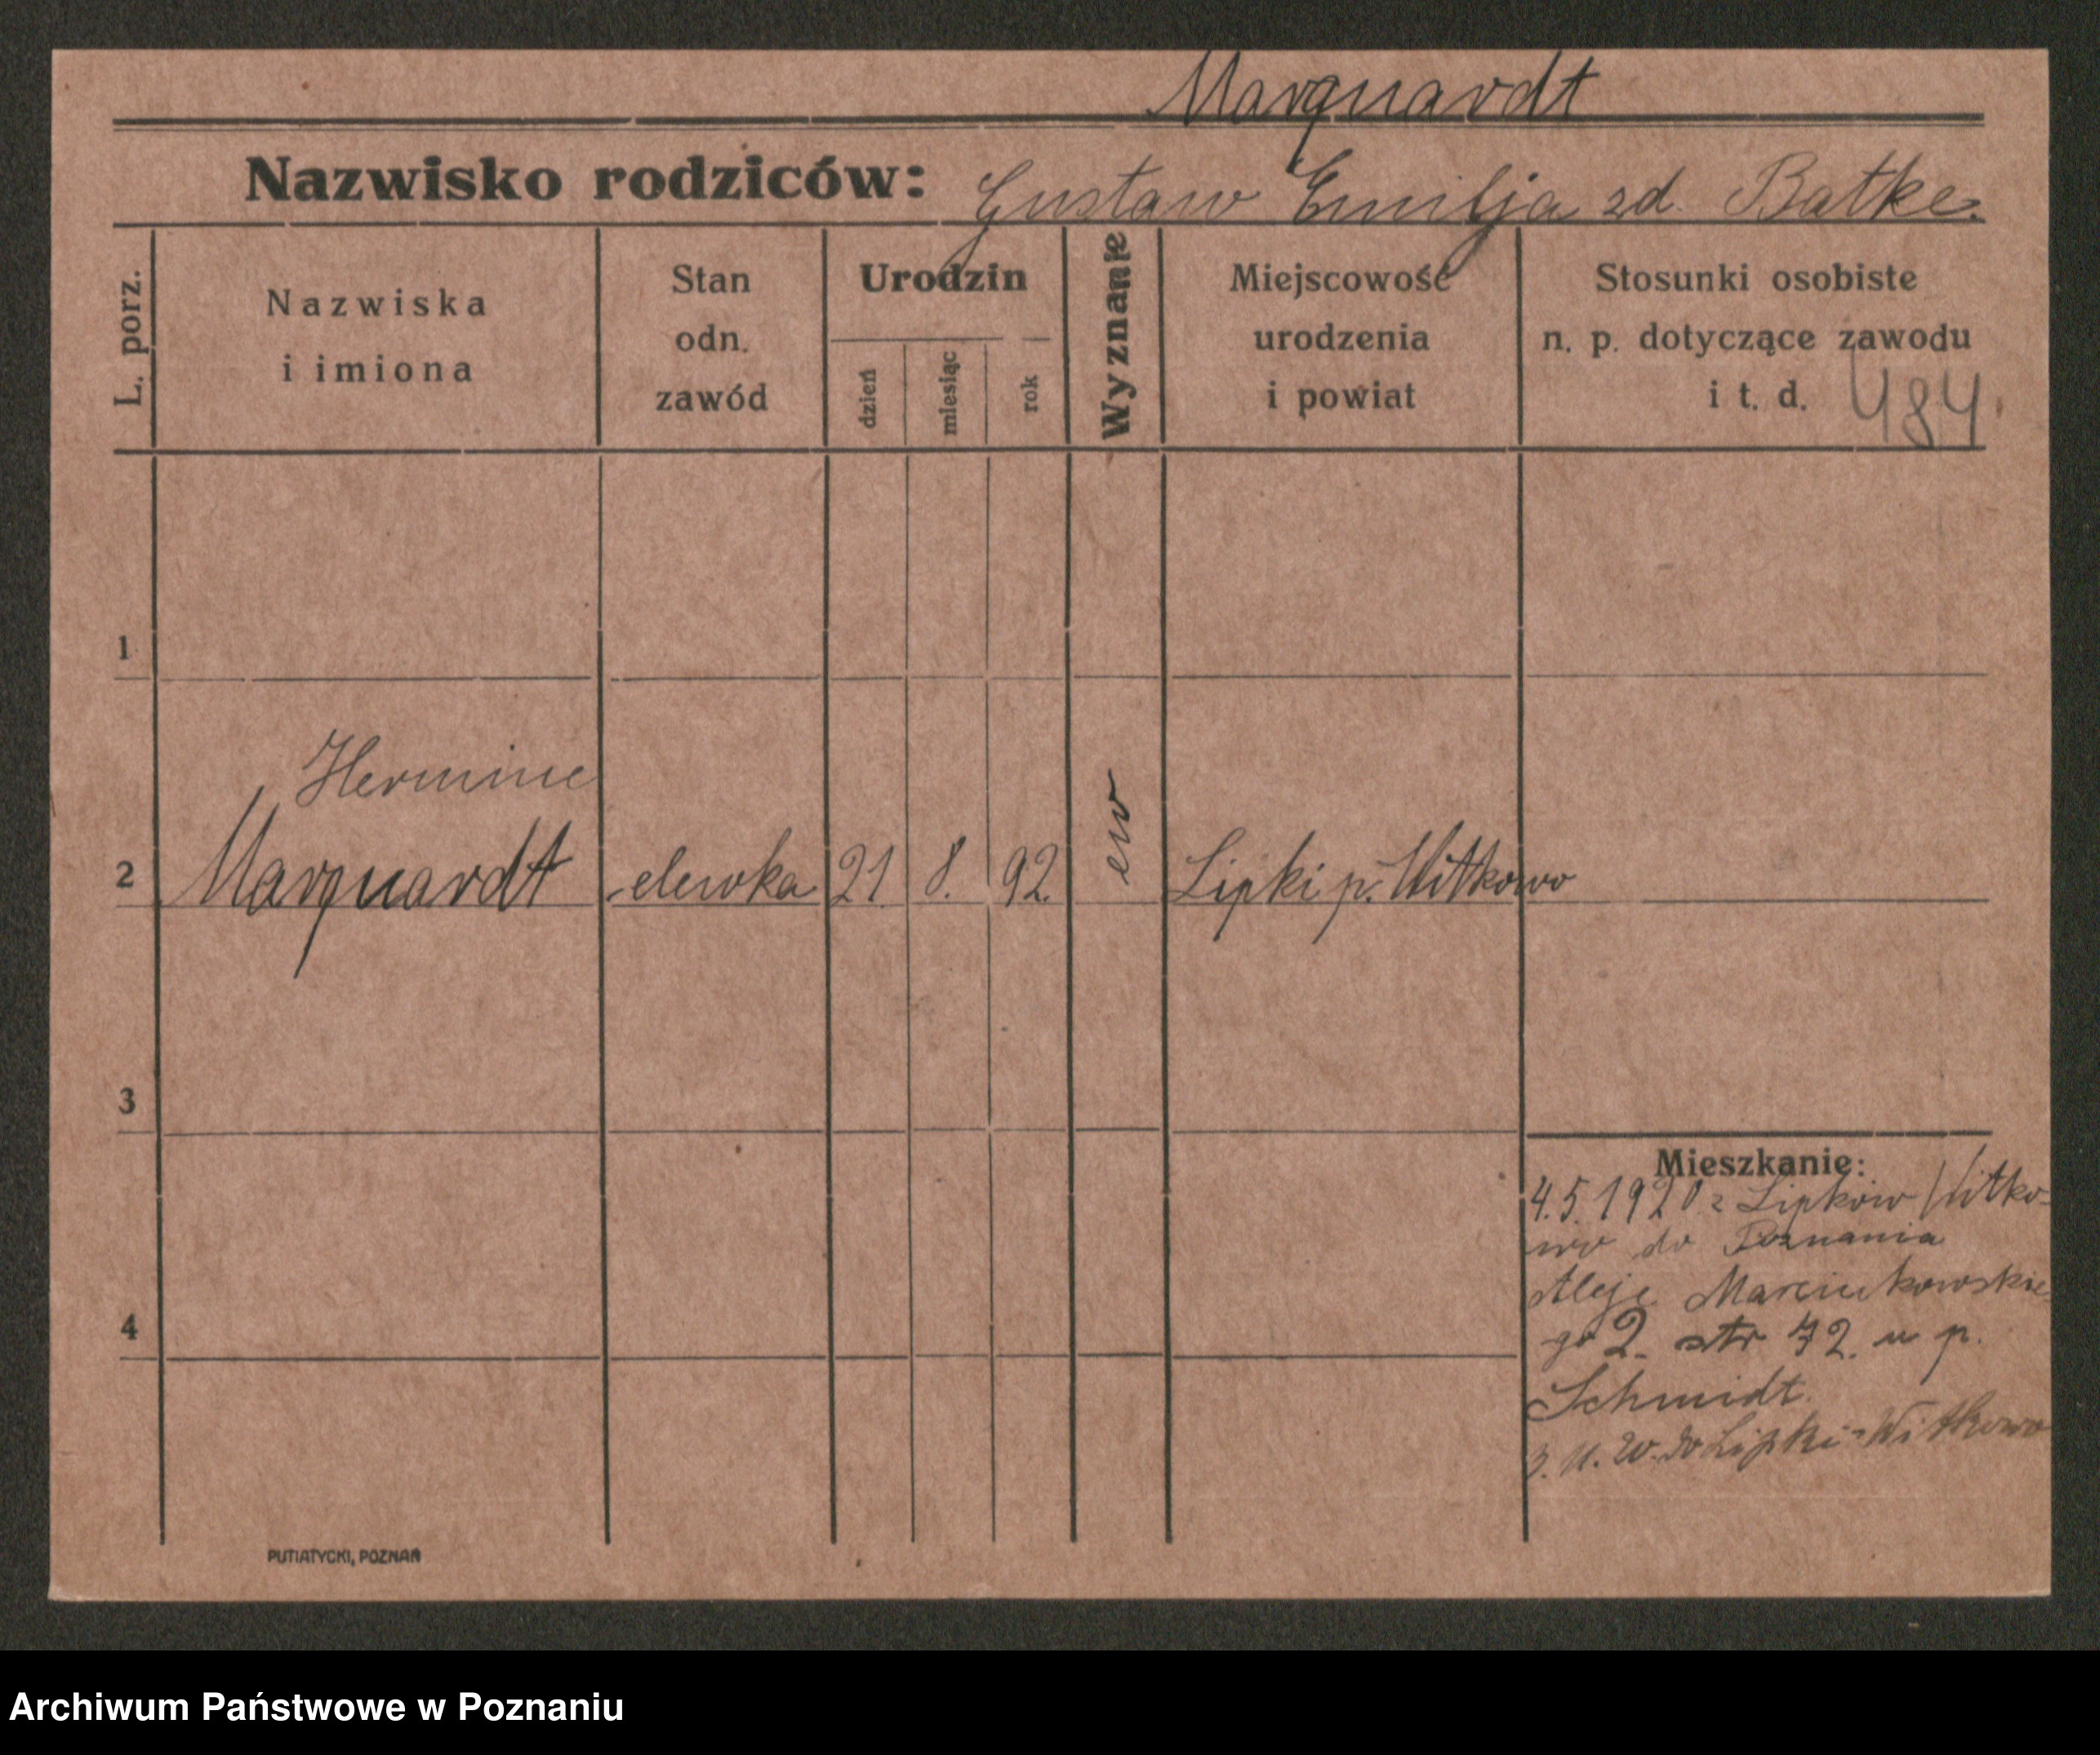 Marquardt
Nazwisko rodziców: Gustaw Emilja zd. Batke.
L. porz.
Nazwiska
i imiona
Stan
odn.
zawód
Urodzin
dzień
miesiąc
rok
Wyznanie
Miejscowość
urodzenia
i powiat
Stosunki osobiste
n. p. dotyczące zawodu
i t. d. 484
1
Hermine
2 Marquardt elewka 21. 8. 92. ew Lipki p. Witkowo
3
4
Mieszkanie:
4.5.1920 z Lipków Witko-
wo do Poznania
Aleje Marcinkowskie-
go 2. str 72. u p.
Schmidt.
3. 11. 20. do Lipki-Witkowo
PUTIATYCKI, POZNAŃ
Archiwum Państwowe w Poznaniu